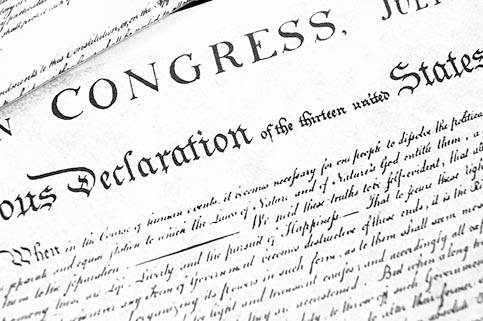 N CONGRESS, JULY
ous Declaration of the thirteen united States
When in the Course of human events, it becomes necessary for one people to dissolve the political
separate and equal station to which the Laws of Nature and of Nature's God entitle them, a
them to the separation. We hold these truths to be self-evident, that all
among these are Life, Liberty and the pursuit of Happiness — That to secure these righ
whenever any Form of Government becomes destructive of these ends, it is the Ri
organizing its powers in such form, as to them shall seem mos
light and transient causes; and accordingly all exp
they are accustomed. But when a long tra
to throw off such Government
to alter their former